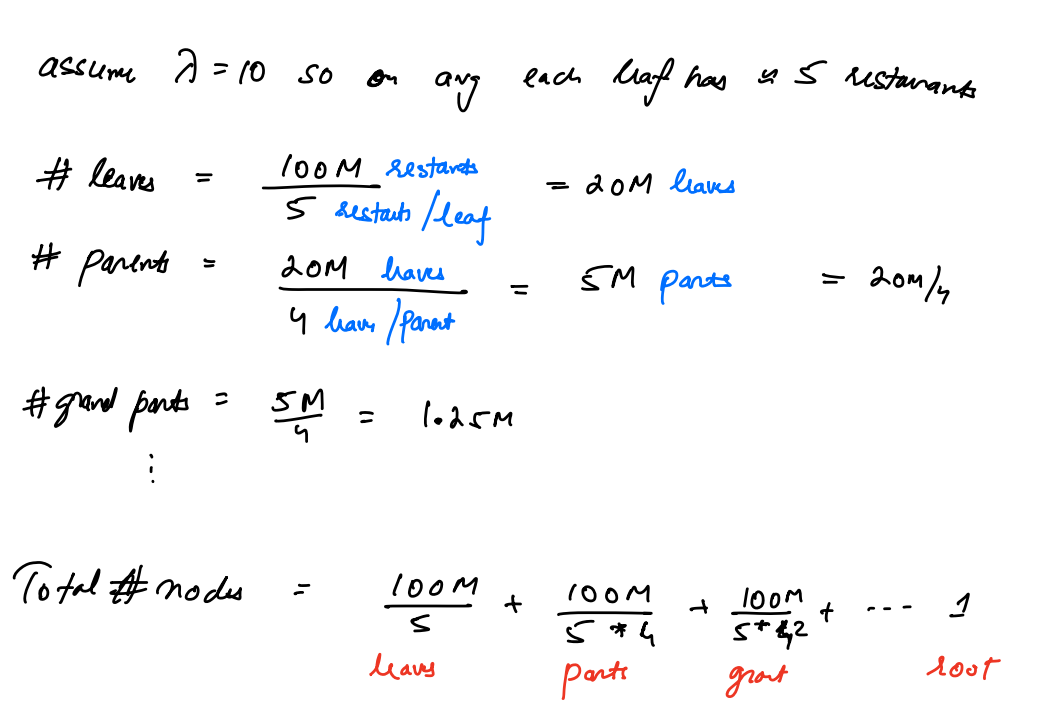 assume λ = 10 so on avg each leaf has ≈ 5 restaurants
# leaves = 100M restarants / 5 restarts/leaf = 20M leaves
# parents = 20M leaves / 4 leaves/parent = 5M parents = 20M/4
# grand parents = 5M / 4 = 1.25M
⋮
Total # nodes = 100M / 5 + 100M / 5 * 4 + 100M / 5 * 4² + --- 1
leaves parents root